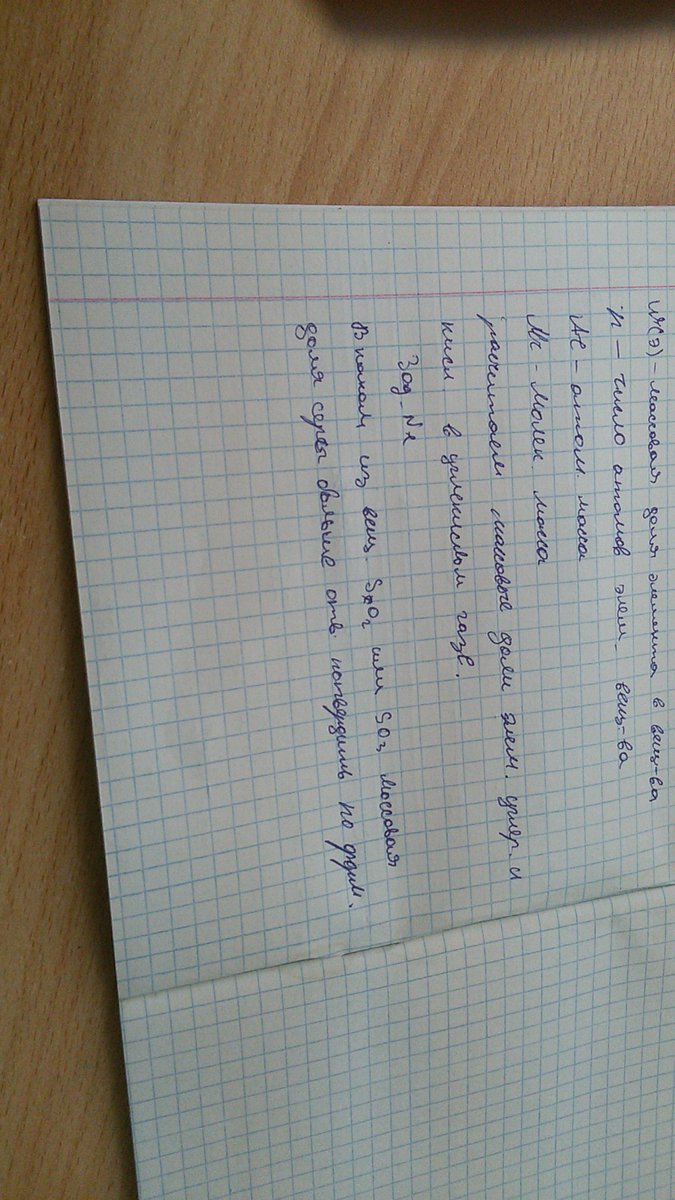 W(э) - массовая доля элемента в вещ-ва
n - число атомов элем. вещ-ва
Аr - атом. масса
Mr - Молек. масса
расчитаем массовые доли элем. углер. и
кисл. в углекислом газе.
Зад. №1
В каком из вещ. SO₂ или SO₃ массовая
доля серы больше отв. потвердить по фдм.